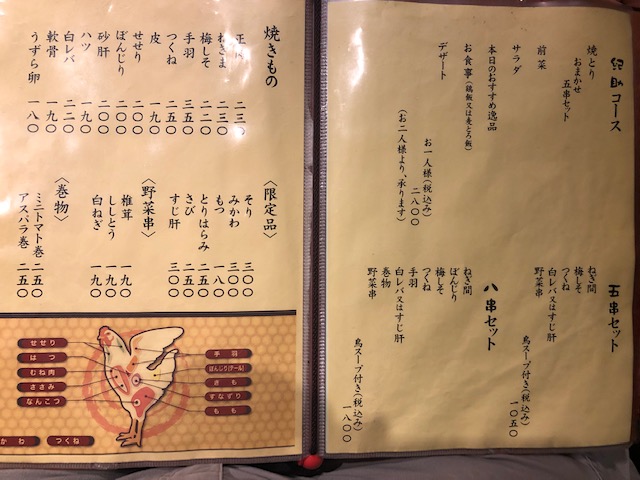 コース
焼とり
おまかせ
五串セット
前菜
サラダ
本日のおすすめ逸品
お食事(鶏飯又は麦とろ飯)
デザート
お一人様(税込み)
二八〇〇
(お二人様より、承ります)
五串セット
ねぎ間
梅しそ
つくね
白レバ又はすじ肝
野菜串
鳥スープ付き(税込み)
一〇五〇
八串セット
ねぎ間
ぼんじり
梅しそ
つくね
手羽
白レバ又はすじ肝
巻物
野菜串
鳥スープ付き(税込み)
一八〇〇
焼きもの
正肉 二三〇
ねぎま 二三〇
梅しそ 二二〇
手羽 三五〇
つくね 二五〇
皮 一九〇
せせり 二〇〇
ぼんじり 二〇〇
砂肝 二〇〇
ハツ 一九〇
白レバ 二二〇
軟骨 一九〇
うずら卵 一八〇
〈限定品〉
そり 三〇〇
みかわ 三〇〇
もつ 一八〇
とりはらみ 二五〇
さび 二五〇
すじ肝 三〇〇
〈野菜串〉
椎茸 一九〇
ししとう 一九〇
白ねぎ 一九〇
〈巻物〉
ミニトマト巻 二五〇
アスパラ巻 二五〇
せせり
はつ
むね肉
ささみ
なんこつ
かわ
つくね
手羽
ぼんじり(テール)
きも
すなずり
もも